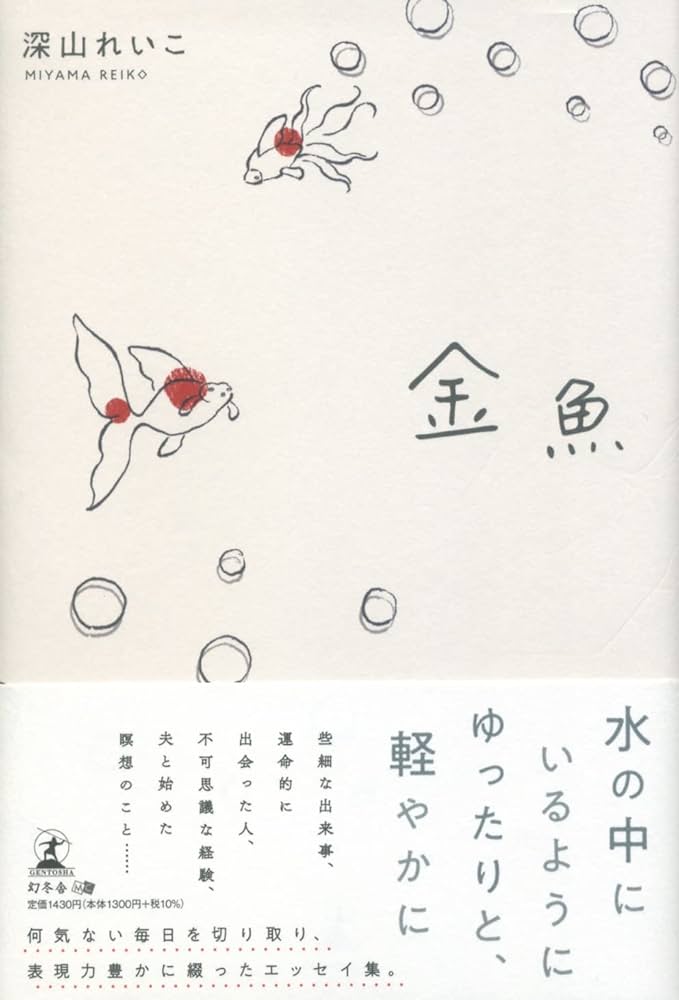 深山れいこ
MIYAMA REIKO
金魚
水の中に
いるように
ゆったりと、
軽やかに
些細な出来事、
運命的に
出会った人、
不可思議な経験、
夫と始めた
瞑想のこと……
GENTOSHA
幻冬舎 MC
定価1430円(本体1300円+税10%)
何気ない毎日を切り取り、
表現力豊かに綴ったエッセイ集。